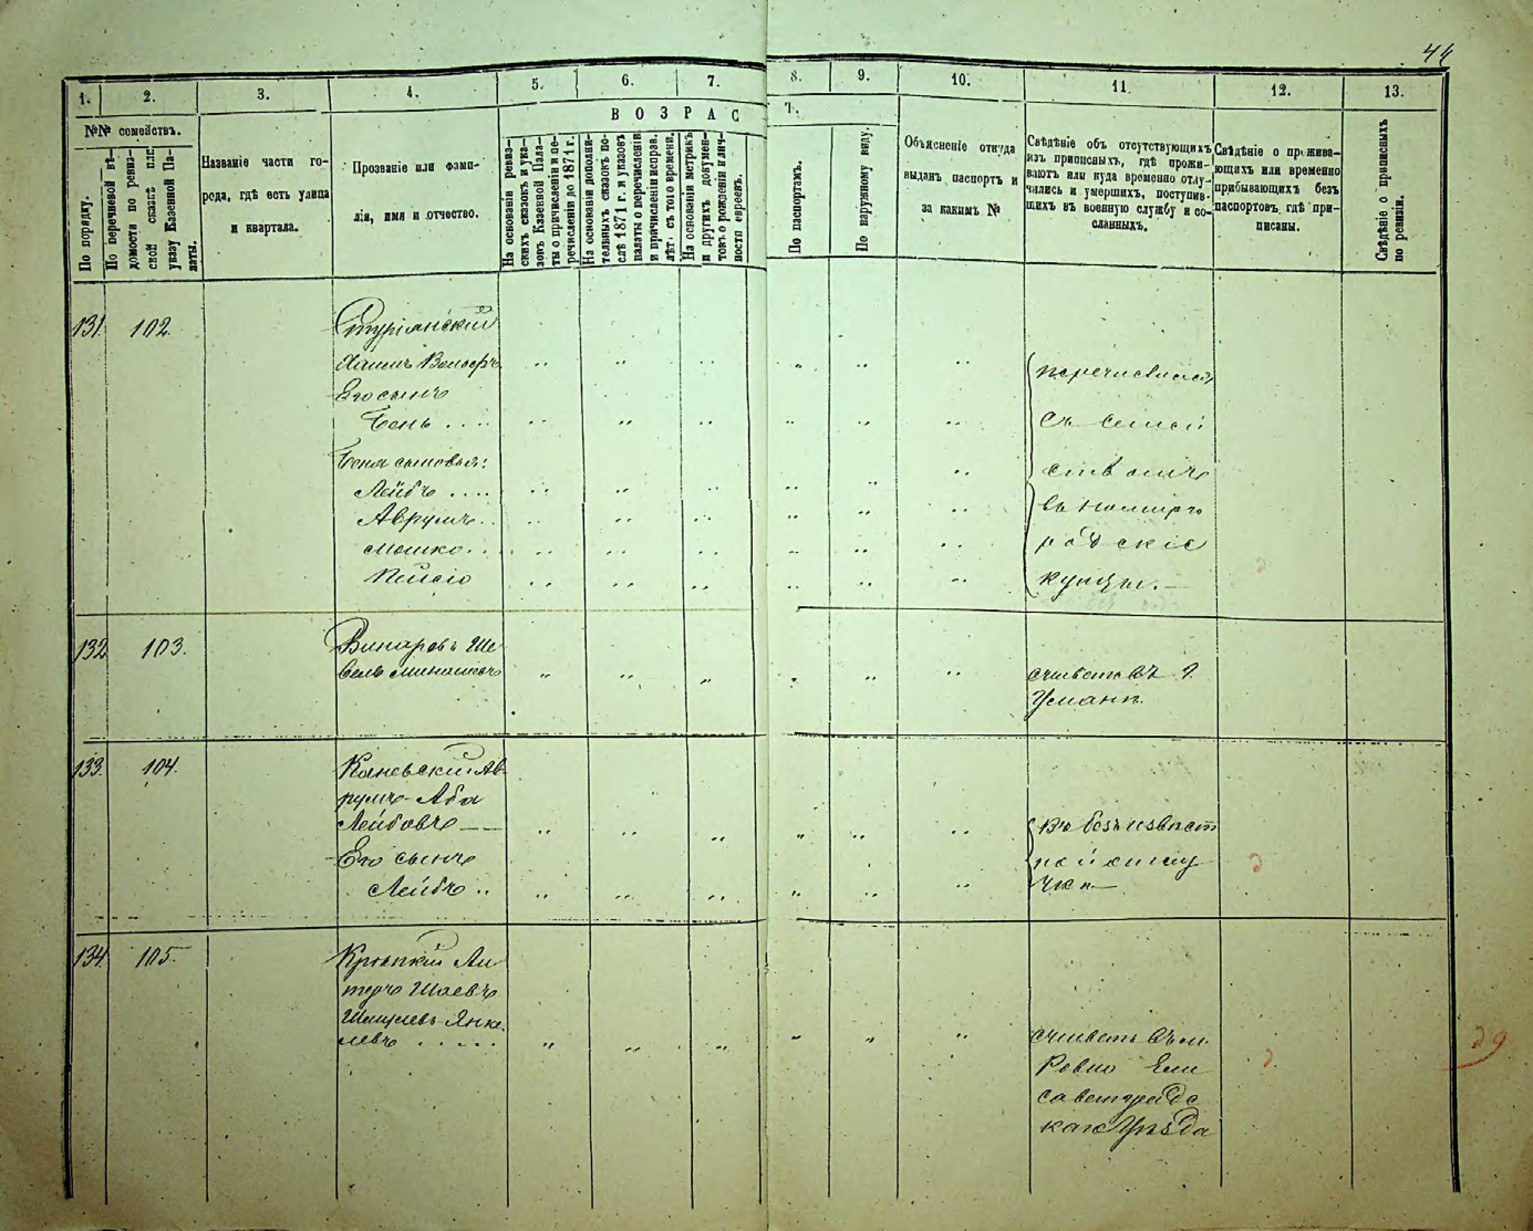 44
1. 2. 3. 4. 5. 6. 7. 8. 9. 10. 11. 12. 13.
№№ семействъ.
По порядку.
По перечневой вѣ-
домости по ревиз-
ской сказкѣ или
указу Казенной Па-
латы.
Названіе части го-
рода, гдѣ есть улица
и квартала.
Прозваніе или фами-
лія, имя и отчество.
ВОЗРАС
На основаніи ревиз-
скихъ сказокъ и ука-
зовъ Казенной Пала-
ты о причисленіи и пе-
речисленіи до 1871 г.
На основаніи дополни-
тельныхъ сказокъ по-
слѣ 1871 г. и указовъ
палаты о перечисленіи
и причисленіи исправ.
лѣт. съ того времени.
На основаніи метрикъ
и другихъ докумен-
товъ о рожденіи и лич-
ности евреевъ.
По паспортамъ.
По наружному виду.
Объясненіе откуда
выданъ паспортъ и
за какимъ №
Свѣдѣніе объ отсутствующихъ
изъ приписныхъ, гдѣ прожи-
ваютъ или куда временно отлу-
чились и умершихъ, поступив-
шихъ въ военную службу и со-
сланныхъ.
Свѣдѣніе о прожива-
ющихъ или временно
прибывающихъ безъ
паспортовъ гдѣ при-
писаны.
Свѣдѣніе о приписныхъ
по ревизіи.
131. 102.
Хаимъ
Его сынъ
Бень ....
Беня сыновья:
Лейбъ ....
Аврумъ..
Мошко..
Пейсю
перечислил
съ семей
ствомъ
въ
скіе
купцы.—
132 103.
Винаровъ Ше
вель
считъ въ г.
Умани.
133. 104.
Каневскій Ав
румъ-Аба
Лейбовъ —
Его сынъ
Лейбъ ..
въ безъизвѣст
ной отлу
чкѣ—
134. 105.
Кропкій
Шаевъ
Янке
левъ .....
въ м.
Ровно Ели
саветградс
каго Уѣзда
29